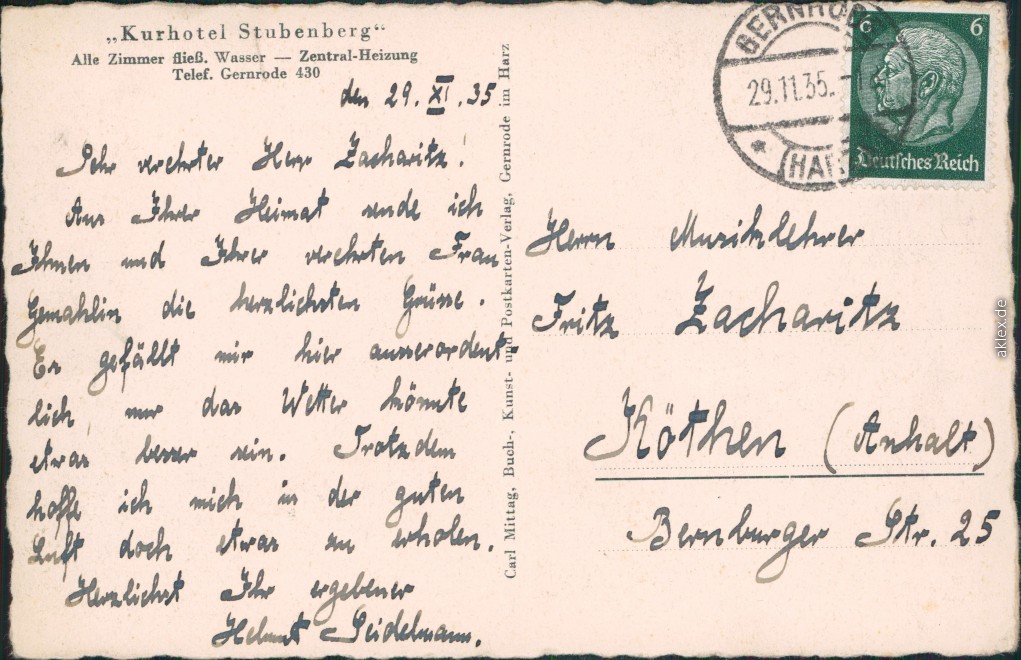 „Kurhotel Stubenberg“
Alle Zimmer fließ. Wasser — Zentral-Heizung
Telef. Gernrode 430
den 29. XI. 35
Sehr verehrter Herr Zacharitz!
Aus Ihrer Heimat sende ich
Ihnen und Ihrer verehrten Frau
Gemahlin die herzlichsten Grüsse.
Es gefällt mir hier ausserordent-
lich, nur das Wetter könnte
etwas besser sein. Trotzdem
hoffe ich mich in der guten
Luft doch etwas zu erholen.
Herzlichst Ihr ergebener
Helmut Seidelmann.
Carl Mittag, Buch-, Kunst- und Postkarten-Verlag, Gernrode im Harz
GERNRODE
29.11.35.
(HARZ)
6 6
Deutsches Reich
Herrn Musiklehrer
Fritz Zacharitz
Köthen (Anhalt)
Bernburger Str. 25
aklex.de